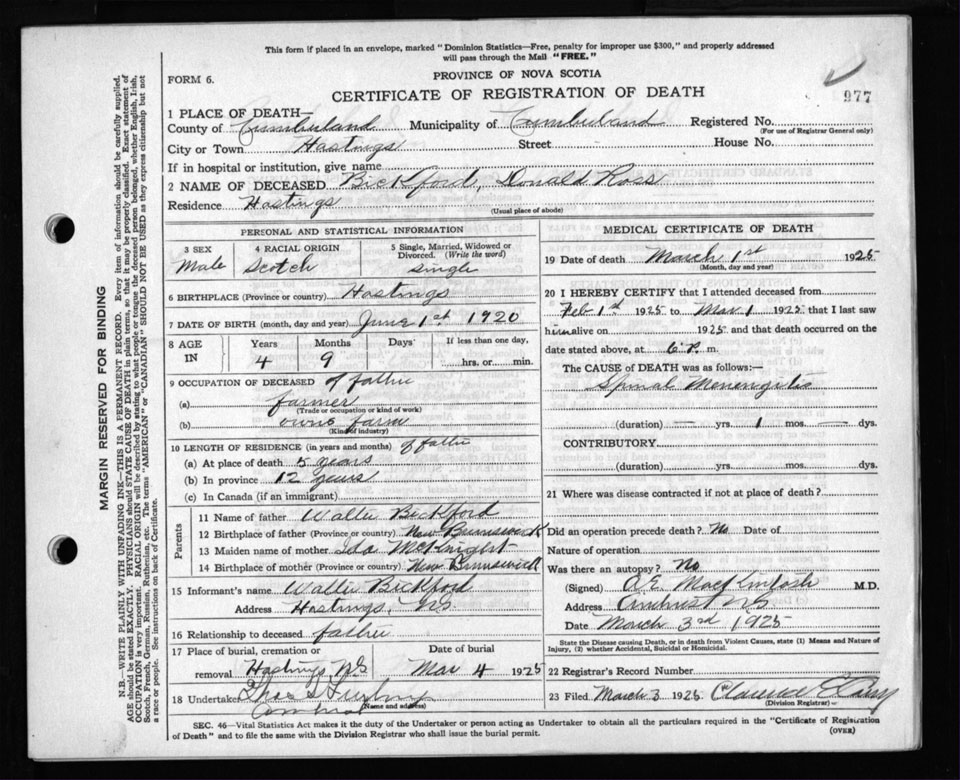 This form if placed in an envelope, marked "Dominion Statistics—Free, penalty for improper use $300," and properly addressed
will pass through the Mail "FREE."
FORM 6.
PROVINCE OF NOVA SCOTIA
CERTIFICATE OF REGISTRATION OF DEATH
977
1 PLACE OF DEATH—
County of Cumberland Municipality of Cumberland Registered No.
(For use of Registrar General only)
City or Town Hastings Street House No.
If in hospital or institution, give name
2 NAME OF DECEASED Bickford, Donald Ross
Residence Hastings
(Usual place of abode)
PERSONAL AND STATISTICAL INFORMATION
3 SEX 4 RACIAL ORIGIN 5 Single, Married, Widowed or
Divorced. (Write the word)
Male Scotch single
6 BIRTHPLACE (Province or country) Hastings
7 DATE OF BIRTH (month, day and year) June 1st 1920
8 AGE IN Years Months Days If less than one day,
4 9 hrs. or min.
9 OCCUPATION OF DECEASED of father
(a) farmer
(Trade or occupation or kind of work)
(b) owns farm
(Kind of industry)
10 LENGTH OF RESIDENCE (in years and months) of father
(a) At place of death 5 years
(b) In province 12 years
(c) In Canada (if an immigrant)
Parents
11 Name of father Walter Bickford
12 Birthplace of father (Province or country) New Brunswick
13 Maiden name of mother Ida McKnight
14 Birthplace of mother (Province or country) New Brunswick
15 Informant's name Walter Bickford
Address Hastings, NS
16 Relationship to deceased father
17 Place of burial, cremation or Date of burial
removal Hastings NS Mar 4 1925
18 Undertaker
Amherst (Name and address)
MEDICAL CERTIFICATE OF DEATH
19 Date of death March 1st 1925
(Month, day and year)
20 I HEREBY CERTIFY that I attended deceased from
Feb 1st 1925 to Mar 1 1925 that I last saw
him alive on 1925 and that death occurred on the
date stated above, at 6 P. m.
The CAUSE of DEATH was as follows:—
Spinal Menengitis
(duration) — yrs. 1 mos. — dys.
CONTRIBUTORY.
(duration) yrs. mos. dys.
21 Where was disease contracted if not at place of death?
Did an operation precede death? No Date of
Nature of operation
Was there an autopsy? No
(Signed) C.E. MacKintosh M.D.
Address Amherst NS
Date March 3rd 1925
State the Disease causing Death, or in death from Violent Causes, state (1) Means and Nature of
Injury, (2) whether Accidental, Suicidal or Homicidal.
22 Registrar's Record Number
23 Filed March 3 1925 Clarence
(Division Registrar)
SEC. 46—Vital Statistics Act makes it the duty of the Undertaker or person acting as Undertaker to obtain all the particulars required in the "Certificate of Registration
of Death" and to file the same with the Division Registrar who shall issue the burial permit.
(OVER)
MARGIN RESERVED FOR BINDING
N.B.—WRITE PLAINLY WITH UNFADING INK—THIS IS A PERMANENT RECORD. Every item of information should be carefully supplied.
AGE should be stated EXACTLY. PHYSICIANS should STATE CAUSE OF DEATH in plain terms, so that it may be properly classified. Exact statement of
OCCUPATION is very important. RACIAL ORIGIN will be described by stating to what people or tongue the deceased person belonged, whether English, Irish,
Scotch, French, German, Russian, Ruthenian, etc. The terms "AMERICAN" or "CANADIAN" SHOULD NOT BE USED as they express citizenship but not
a race or people. See instructions on back of Certificate.